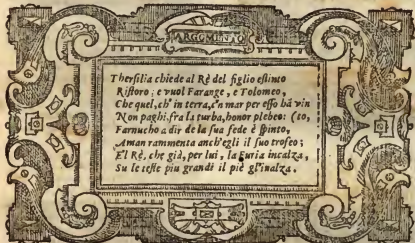 ARGOMENTO
Thersilia chiede al Rè del figlio estinto
Ristoro; e vuol Farange, e Tolomeo,
Che quel, ch'in terra, e'n mar per esso hà vin
Non paghi, fra la turba, honor plebeo: (to,
Farnucho a dir de la sua fede è spinto,
Aman rammenta anch'egli il suo trofeo;
E'l Rè, che già, per lui, la Furia incalza,
Su le teste piu grandi il piè gl'inalza.